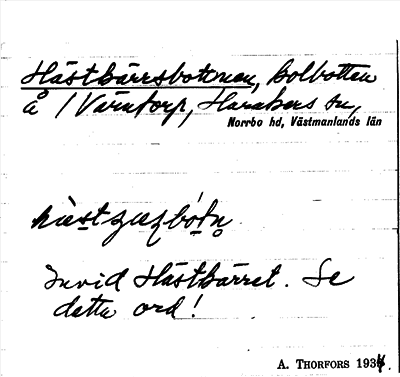 Hästbärrsbottnen, Bolbotten
å / Värntorp, Harakers sn,
Norrbo hd, Västmanlands län
Invid Hästbärret. Se
detta ord!
A. THORFORS 1934.